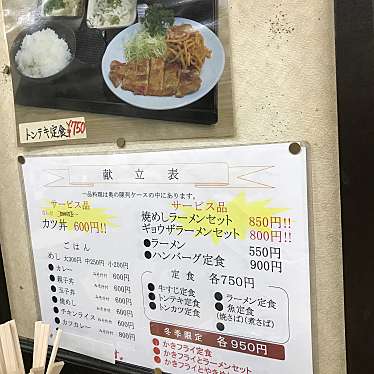 トンテキ定食¥750
献立表
一品料理は奥の陳列ケースの中にあります。
サービス品
カツ丼 600円!!
ごはん
めし 大300円 中250円 小200円
●カレー 600円
●親子丼 600円
●玉子丼
●焼めし
●チキンライス
●カツカレー 800円
サービス品
焼めしラーメンセット 850円!!
ギョウザラーメンセット 800円!!
●ラーメン 550円
●ハンバーグ定食 900円
定食 各750円
●牛すじ定食
●トンテキ定食
●トンカツ定食
●ラーメン定食
●魚定食
(焼さば)(煮さば)
冬季限定 各950円
●かきフライ定食
●かきフライとラーメンセット
●かきフライとやきめし